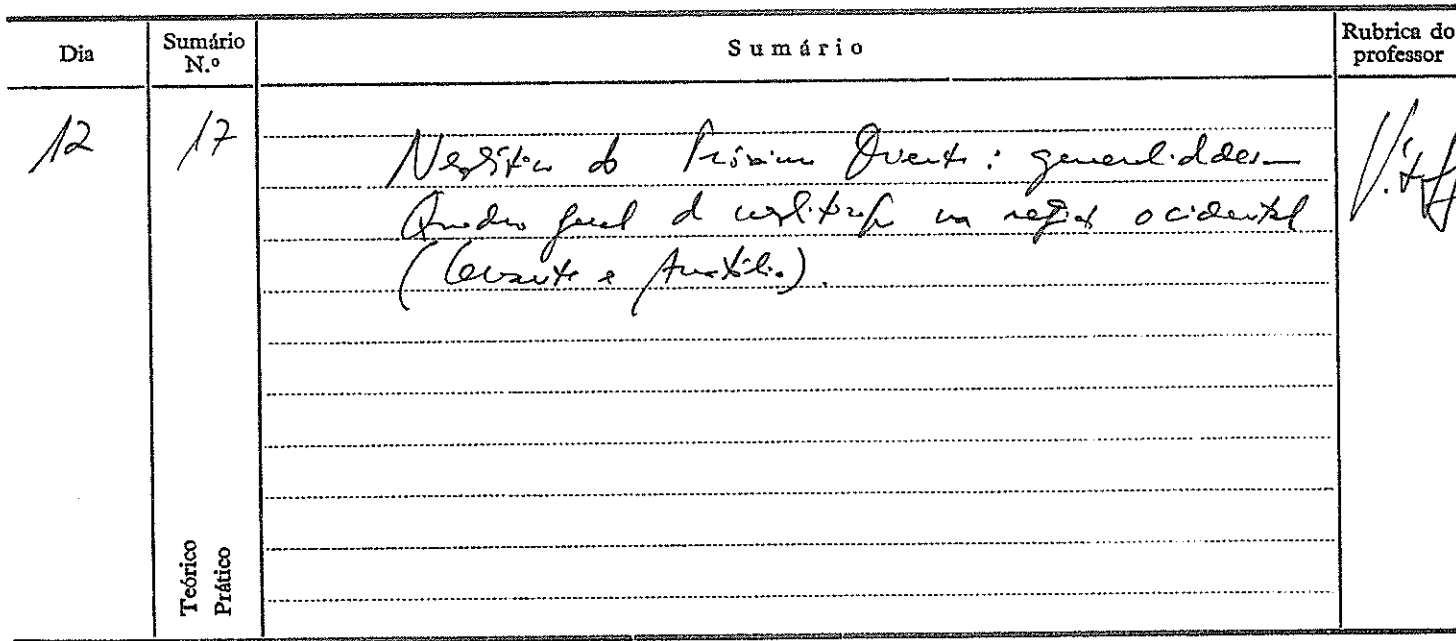 Dia
Sumário N.º
Sumário
Rubrica do professor
12
17
Neolítico do Próximo Oriente: generalidades –
Quadro geral da na região ocidental
(Levante e Anatólia).
Teórico
Prático